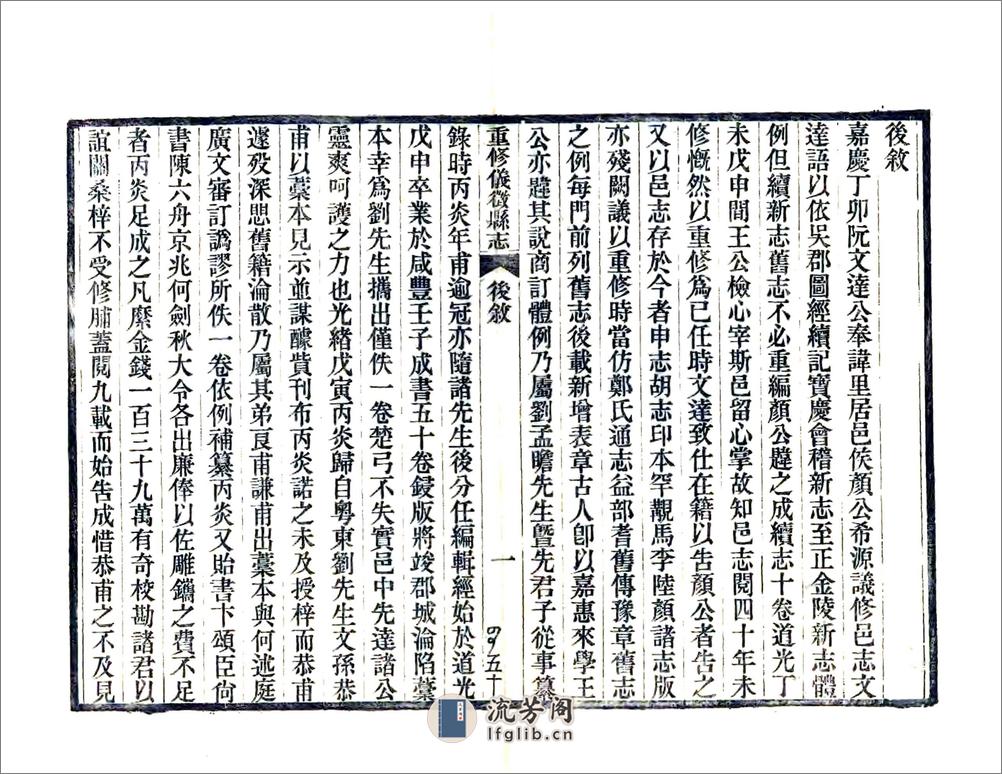 後敘
嘉慶丁卯阮文達公奉諱里居邑侯顏公希源議修邑志文
達語以依吳郡圖經續記寶慶會稽新志至正金陵新志體
例但續新志舊志不必重編顏公韙之成續志十卷道光丁
未戊申間王公檢心宰斯邑留心掌故知邑志閱四十年未
修慨然以重修為已任時文達致仕在籍以告顏公者告之
又以邑志存於今者申志胡志印本罕覯馬李陸顏諸志版
亦殘闕議以重修時當仿鄭氏通志益部耆舊傳豫章舊志
之例每門前列舊志後載新增表章古人卽以嘉惠來學王
公亦韙其說商訂體例乃屬劉孟瞻先生曁先君子從事纂
重修儀徵縣志 後敘 一
四九五十
錄時丙炎年甫逾冠亦隨諸先生後分任編輯經始於道光
戊申卒業於咸豐壬子成書五十卷鋟版將竣郡城淪陷藁
本幸爲劉先生攜出僅佚一卷楚弓不失實邑中先達諸公
靈爽呵護之力也光緒戊寅丙炎歸自粵東劉先生文孫恭
甫以藁本見示並謀醵貲刊布丙炎諾之未及授梓而恭甫
遽歿深思舊籍淪散乃屬其弟良甫謙甫出藁本與何述庭
廣文審訂譌謬所佚一卷依例補纂丙炎又貽書卞頌臣尙
書陳六舟京兆何劍秋大令各出廉俸以佐雕鐫之費不足
者丙炎足成之凡縻金錢一百三十九萬有奇校勘諸君以
誼關桑梓不受修脯蓋閱九載而始告成惜恭甫之不及見
流芳阁
lfglib.cn